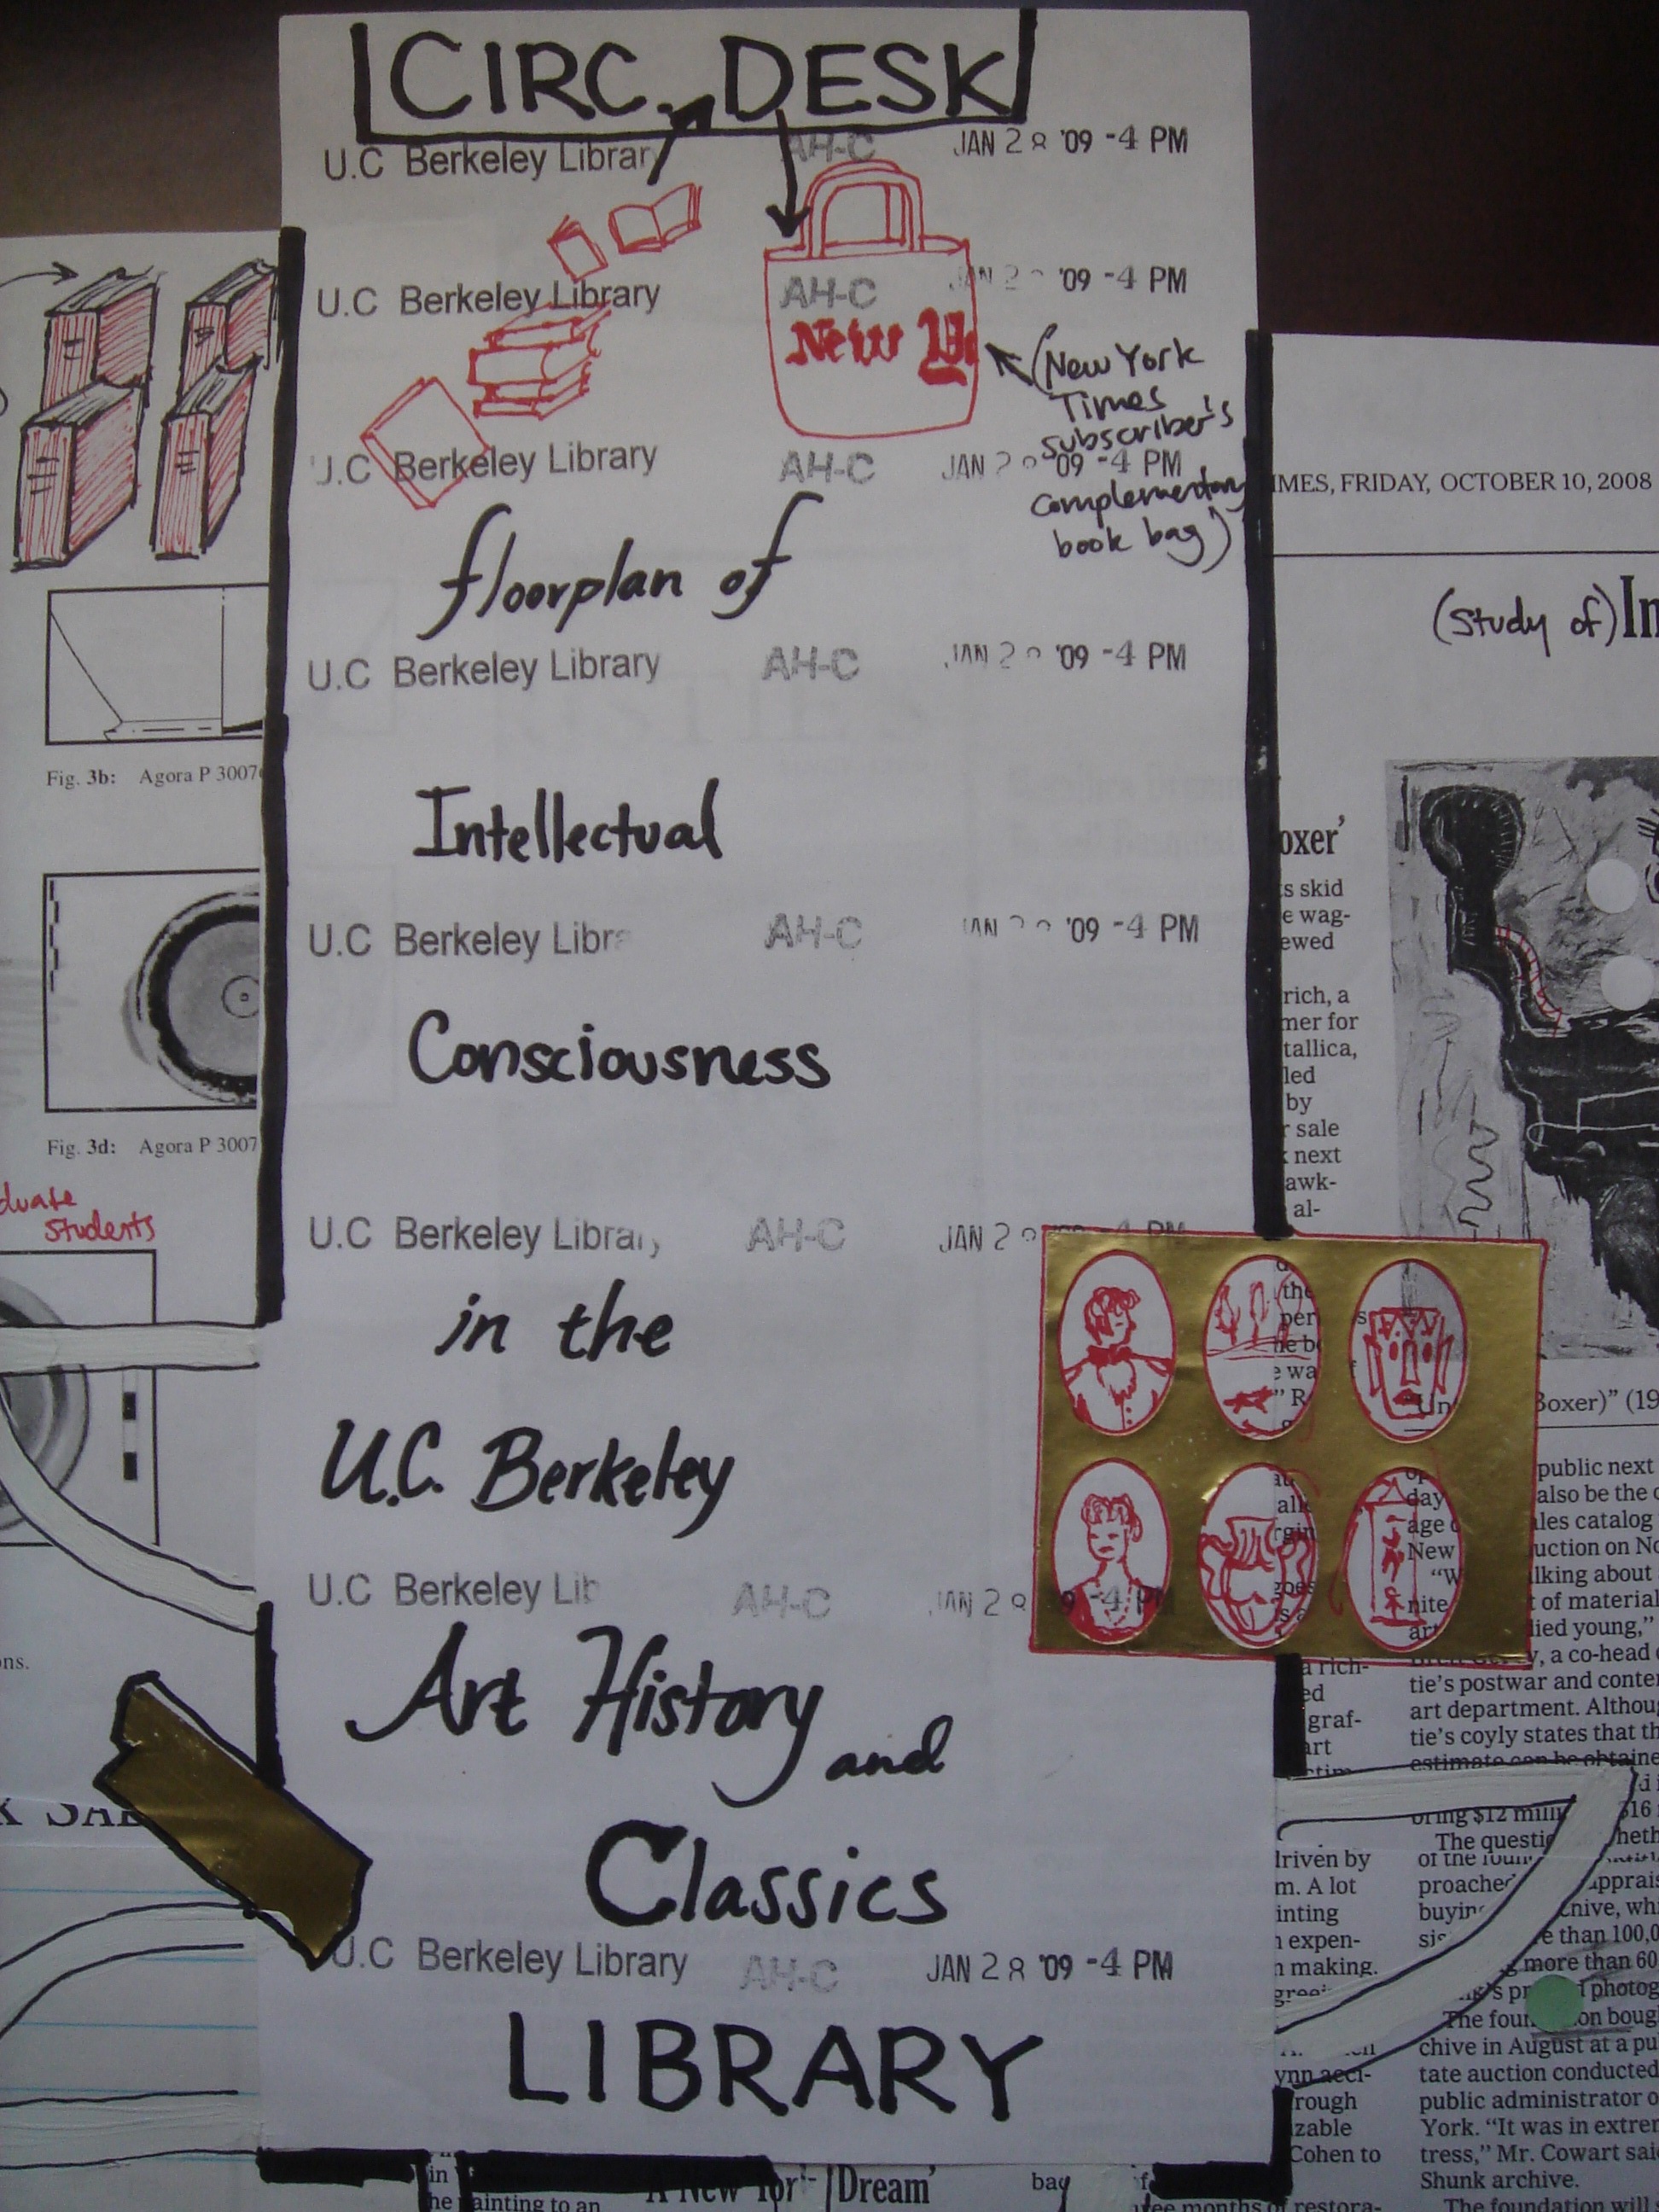 CIRC. DESK
U.C Berkeley Librar AH-C JAN 28 '09 -4 PM
U.C Berkeley Library AH-C JAN 2 '09 -4 PM
New Y
(New York
Times
subscriber's
U.C Berkeley Library AH-C JAN 2 '09 -4 PM
complementary
book bag)
floorplan of
U.C Berkeley Library AH-C JAN 2 '09 -4 PM
Intellectual
U.C Berkeley Libra AH-C JAN '09 -4 PM
Consciousness
U.C Berkeley Library AH-C JAN 2 4 PM
in the
U.C. Berkeley
U.C Berkeley Lib AH-C JAN 28 9 -4 PM
Art History
and
Classics
U.C Berkeley Library AH-C JAN 28 '09 -4 PM
LIBRARY
Fig. 3b: Agora P 3007
Fig. 3d: Agora P 3007
duate
students
ons.
K SAL
IMES, FRIDAY, OCTOBER 10, 2008
(study of) In
oxer'
s skid
e wag-
ewed
rich, a
mer for
tallica,
led
by
r sale
next
awk-
al-
Boxer)" (19
public next
also be the
ales catalog
uction on No
lking about
t of material
died young,"
y, a co-head
tie's postwar and conte
art department. Althoug
tie's coyly states that th
estimate can be obtaine
a rich-
ed
graf-
art
bring $12 milli $16
The questio wheth
driven by
m. A lot
inting
n expen-
n making.
proached apprais
buying chive, wh
e than 100,0
more than 60
photog
The foun on boug
chive in August at a pu
tate auction conducted
public administrator o
York. "It was in extrem
tress," Mr. Cowart sai
Shunk archive.
The foundation will
rough
izable
Cohen to
in
he painting to an
A New Yor Dream'
bag
three months of restora-